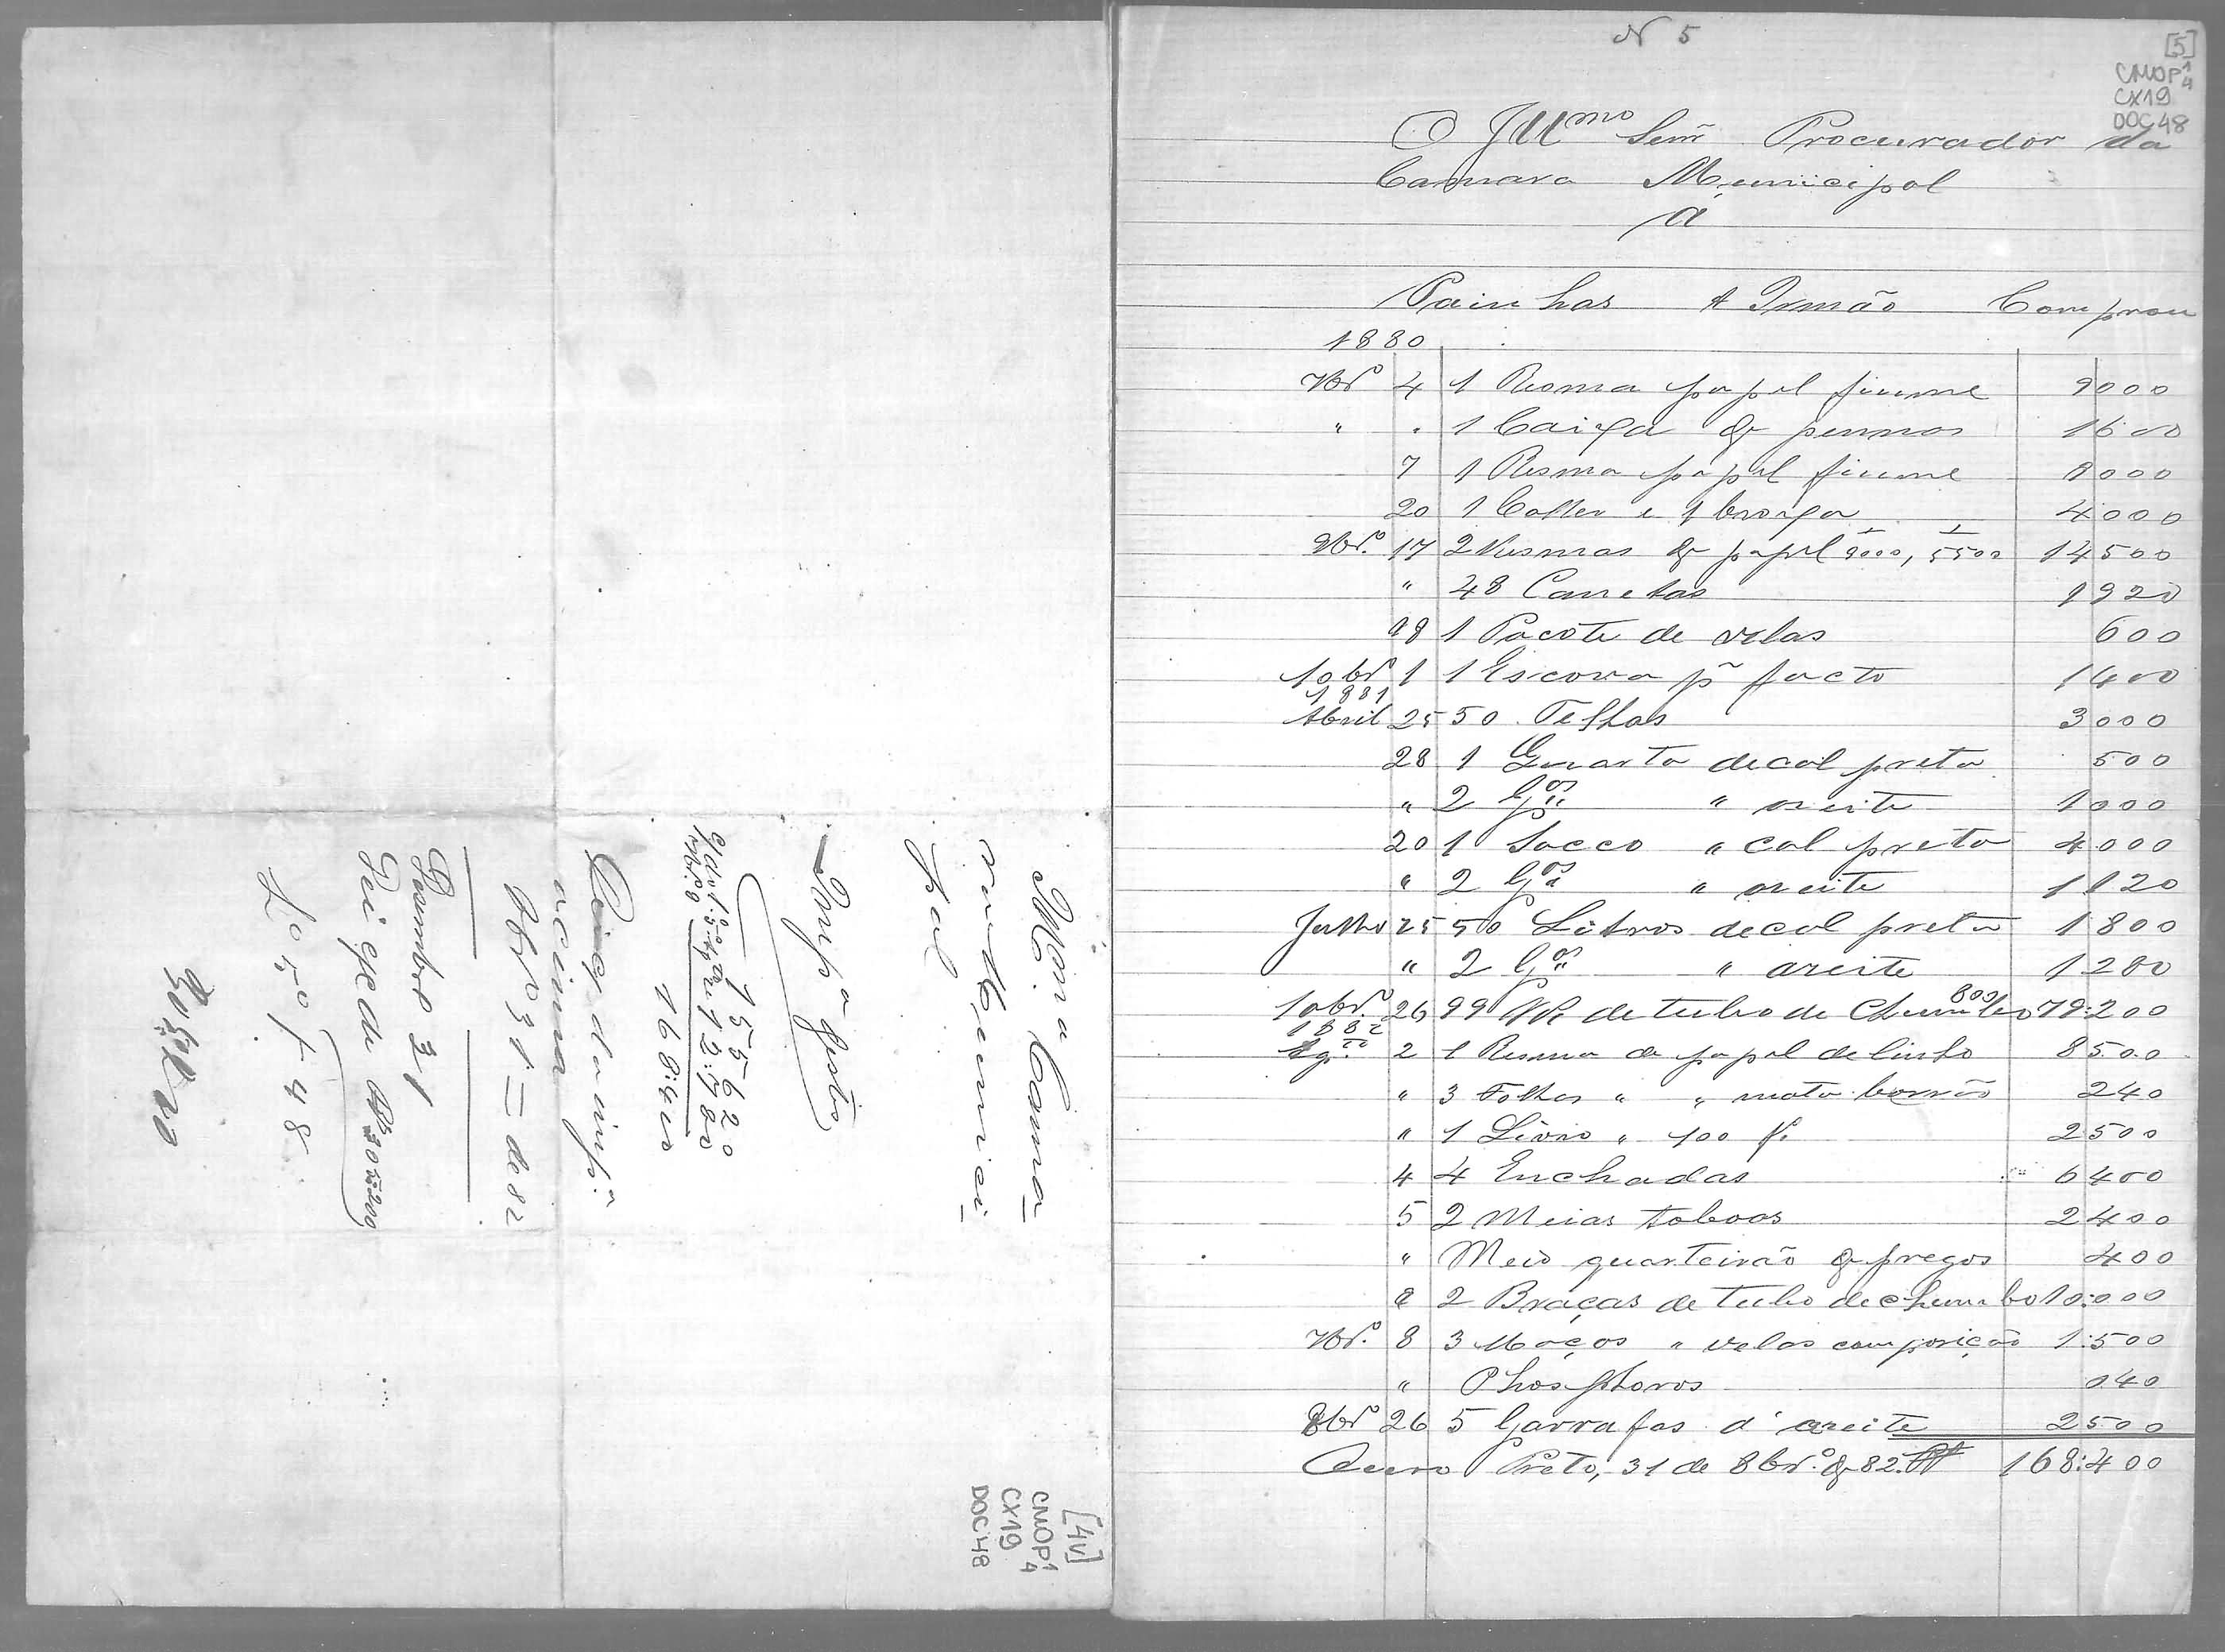 Illma Cama
ra Munici
pal
Imp.ª justo
155620
12:780
168:400
acima
8brº 31 = de 82
[4v]
CMOP 1/4
CX19
DOC 48
N 5
[5]
CMOP 1/4
CX19
DOC 48
O Illmo Senr Procurador da
Camara Municipal
A
Painhas & Irmão Comprou
1880
7brº 4 1 Resma papel fiume 9000
" " 1 Caixa de pennas 1600
7 1 Resma papel fiume 9000
20 1 Colher e 1 broxa 4000
9brº 17 2 Resmas de papel 9000, 5500 14500
" 48 Canetas 1920
18 1 Pacote de velas 600
10brº 1 1 Escova pª facto 1400
1881
Abril 25 50 Telhas 3000
28 1 Quarta de cal preta 500
" 2 Gªs " azeite 1000
20 1 Sacco " cal preta 4000
" 2 Gªs " azeite 1120
Julho 25 50 Litros de cal preta 1800
" 2 Gªs " azeite 1280
10brº 26 99 de tubo de Chumbo 800 79:200
1882
Ag.to 2 1 Resma de papel de linho 8500
" 3 Folhas " " mata borrão 240
" 1 Livro " 100 f. 2500
4 4 Enchadas 6400
5 2 Meias taboas 2400
" Meio quarteirão de pregos 400
8 2 Braças de tubo de chumbo 10:000
7brº 8 3 Maços " velas composição 1:500
" Phosphoros 040
8brº 26 5 Garrafas d'azeite 2500
Ouro Preto, 31 de 8brº de 82. 168:400